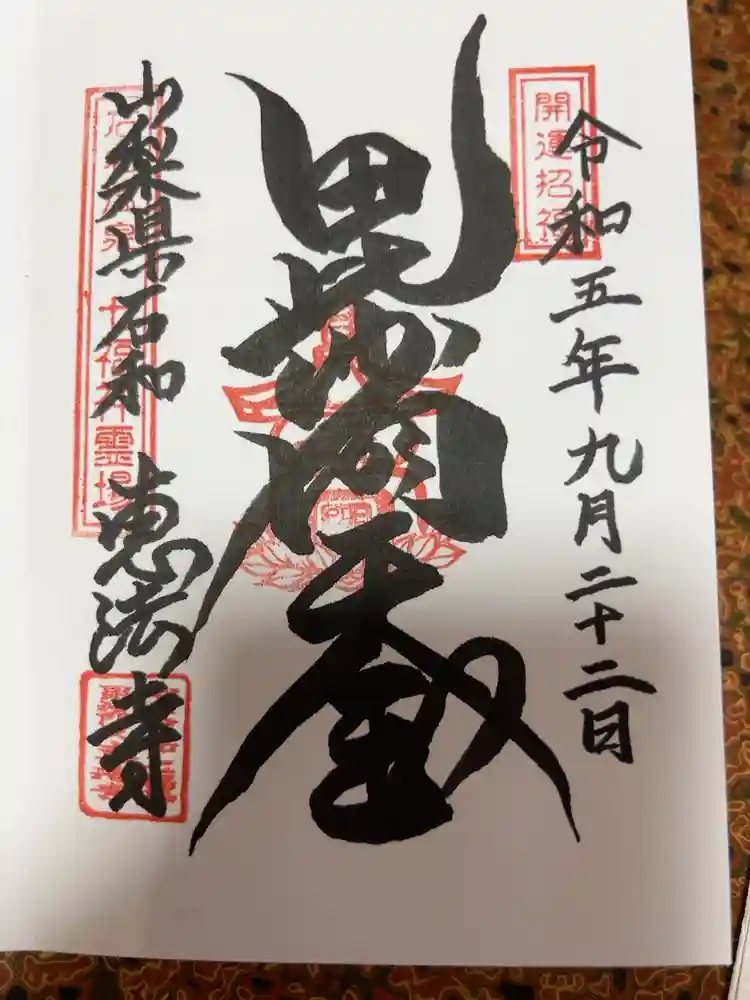 令和五年九月二十二日
開運招福
毘沙門天
山梨県石和 恵法寺
石和温泉七福神霊場